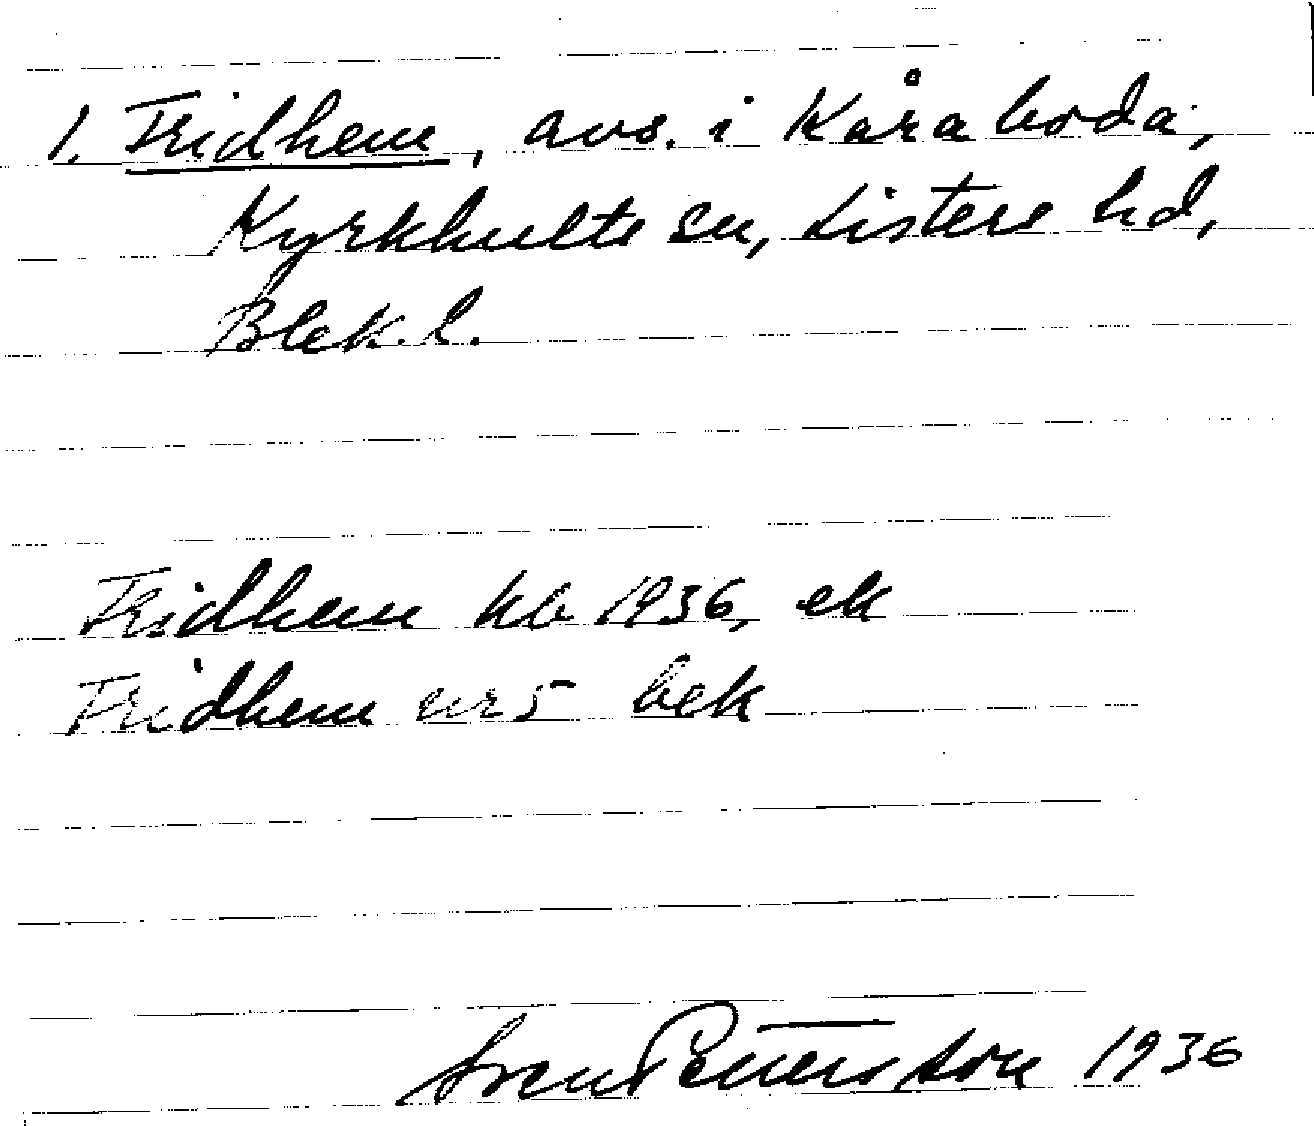 1. Fridhem, avs. i Kåraboda,
Kyrkhults sn, Listers hd,
Blek. l.
Fridhem kb 1936, ek
Fridhem nr 5 bek
Sven Pettersson 1936